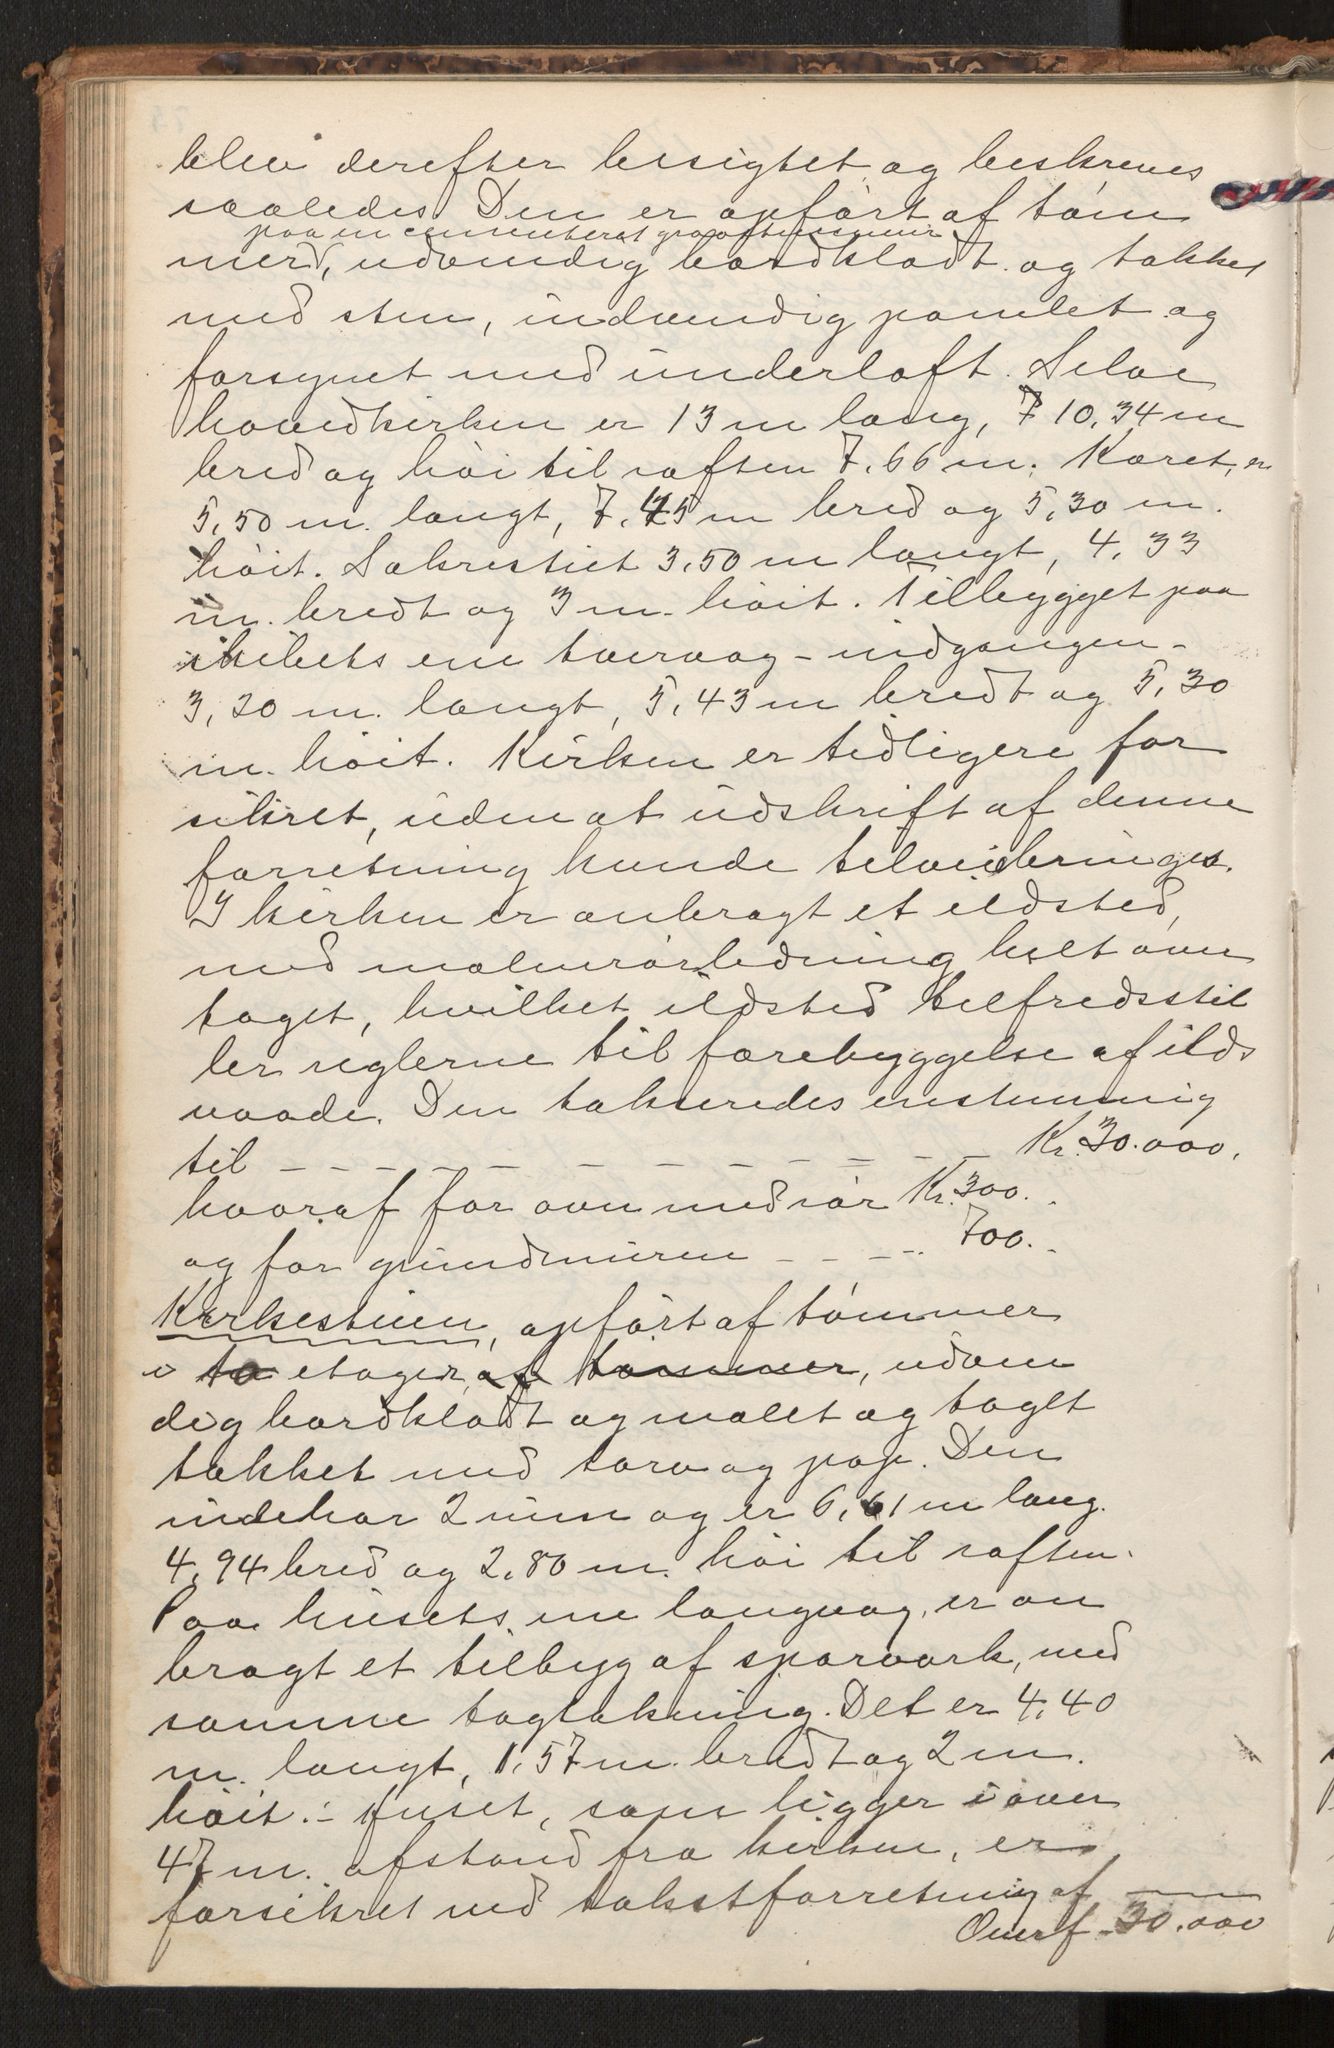 blev derefter besigtet og beskreves
saaledes. Den er opført af tøm
paa en cementeret graastensmur
mer, udvendig bordklædt og tækket
med sten, indvendig panelet og
forsynet med underloft. Selve
hovedkirken er 13 m lang, 7 10,34 m
bred og høi til raften 7.66 m. Koret, er
5,50 m. langt, 7,45 m bred og 5,30 m.
høit. Sakrestiet 3,50 m langt, 4,33
m. bredt og 3 m. høit. Tilbygget paa
skibets ene tværvæg - indgangen -
3,20 m. langt, 5,43 m bredt og 5,30
m. høit. Kirken er tidligere for
sikret, uden at udskrift af denne
forretning kunde tilveiebringes.
I kirken er anbragt et ildsted,
med malmrørledning helt over
taget, hvilket ildsted tilfredsstil
ler reglerne til forebyggelse af ilds
vaade. Den takseredes enstemmig
til - - - - - - - - - - - Kr. 30.000.
hvoraf for ovn med rør Kr. 300.
og for grundmuren - - - - 700. -
Kirkestuen, opført af tømmer
i to etager, af tømmer, udven
dig bordklædt og malet og taget
tækket med torv og pap. Den
indehar 2 rum og er 6,61 m lang.
4,94 bred og 2,80 m. høi til raften.
Paa husets ene langvæg, er an
bragt et tilbyg af sparværk, med
samme tagtækning. Det er 4,40
m. langt, 1,57 m. bredt og 2 m.
høit. - Huset, som ligger i over
47 m. afstand fra kirken, er
forsikret ved takstforretning af
Overf. 30.000